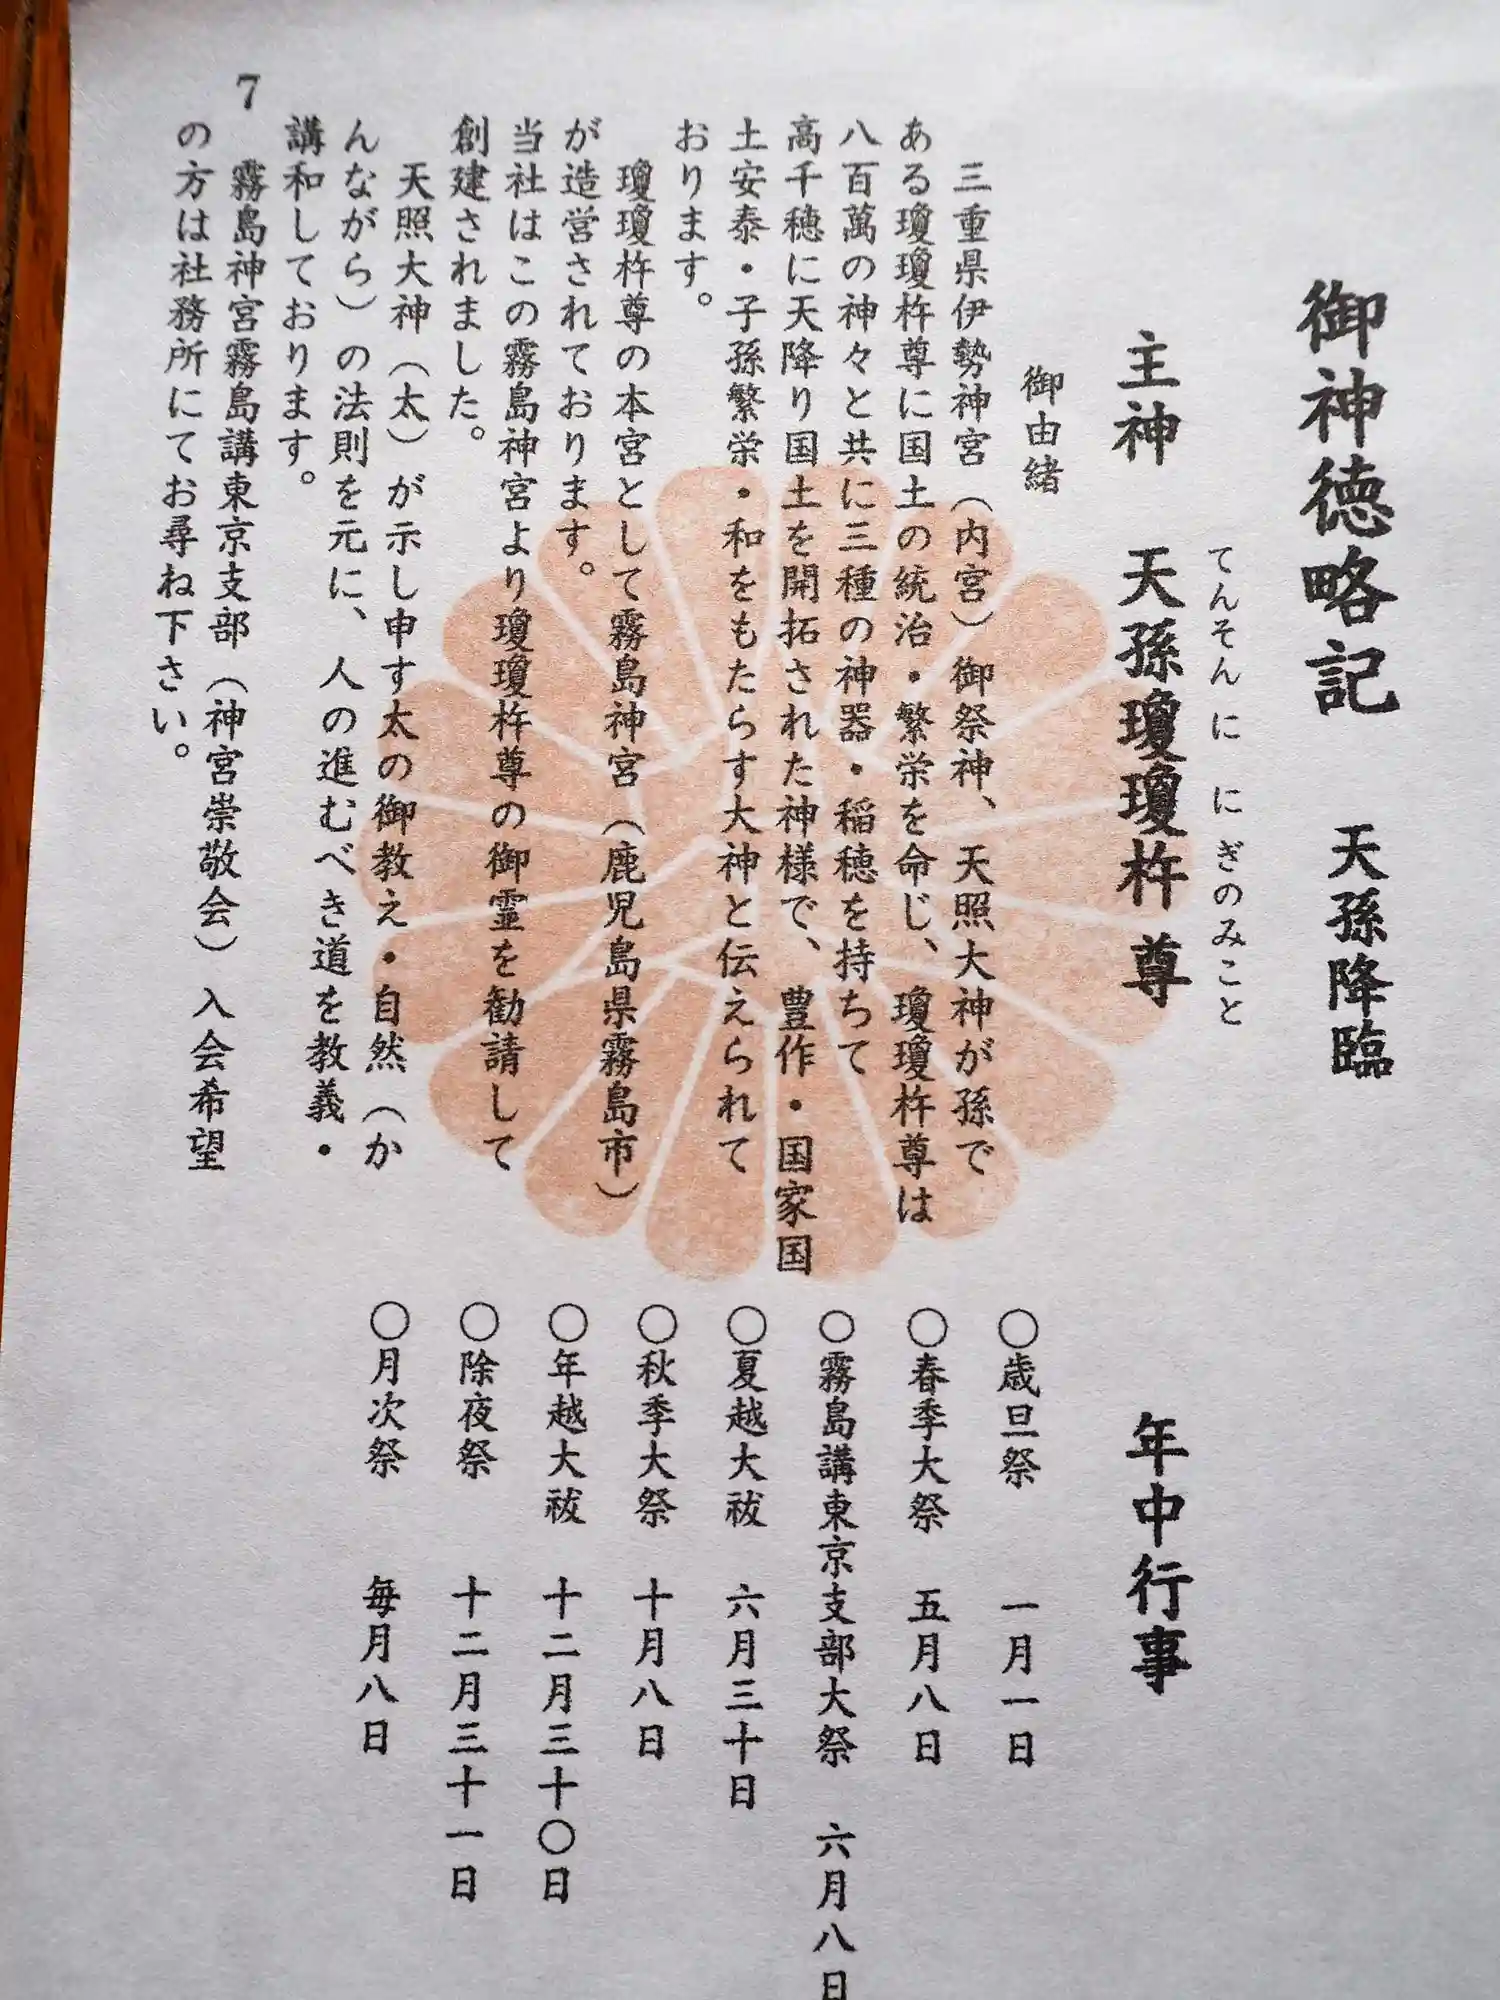 御神徳略記　天孫降臨
てんそんに　にぎのみこと
主神　天孫瓊瓊杵尊
御由緒
三重県伊勢神宮（内宮）御祭神、天照大神が孫で
ある瓊瓊杵尊に国土の統治・繁栄を命じ、瓊瓊杵尊は
八百萬の神々と共に三種の神器・稲穂を持ちて
高千穂に天降り国土を開拓された神様で、豊作・国家国
土安泰・子孫繁栄・和をもたらす大神と伝えられて
おります。
瓊瓊杵尊の本宮として霧島神宮（鹿児島県霧島市）
が造営されております。
当社はこの霧島神宮より瓊瓊杵尊の御霊を勧請して
創建されました。
天照大神（太）が示し申す太の御教え・自然（か
んながら）の法則を元に、人の進むべき道を教義・
講和しております。
霧島神宮霧島講東京支部（神宮崇敬会）入会希望
の方は社務所にてお尋ね下さい。
年中行事
〇歳旦祭　一月一日
〇春季大祭　五月八日
〇霧島講東京支部大祭　六月八日
〇夏越大祓　六月三十日
〇秋季大祭　十月八日
〇年越大祓　十二月三十〇日
〇除夜祭　十二月三十一日
〇月次祭　毎月八日
7